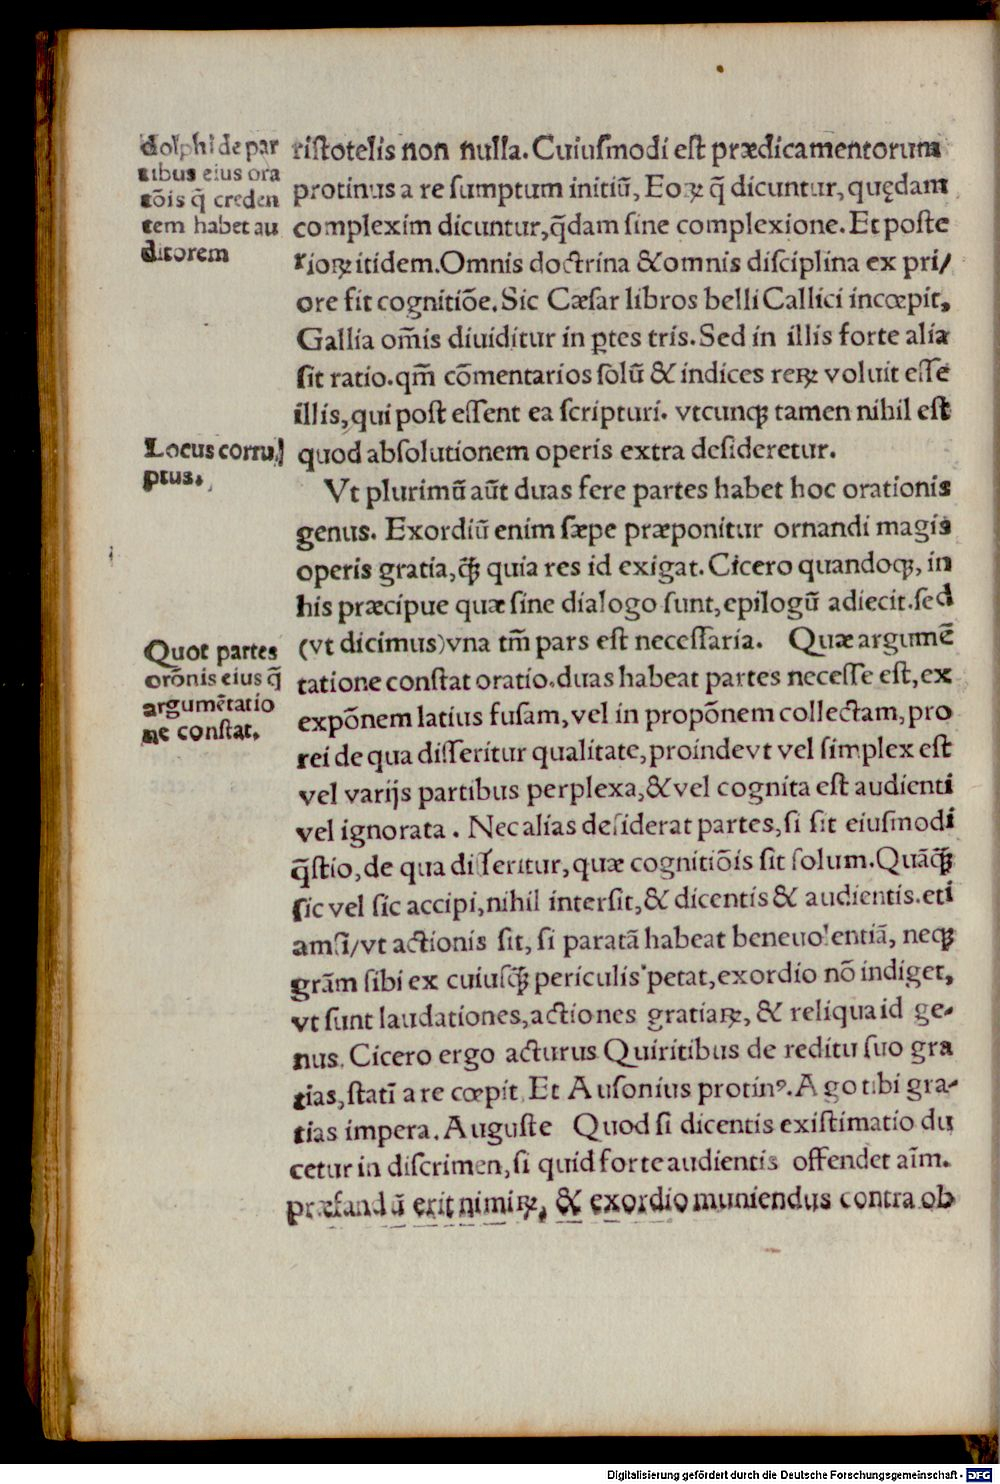 dolphi de par
tibus eius ora
tōis q̄ creden
tem habet au
ditorem
ristotelis non nulla. Cuiuſmodi eſt prædicamentorum
protinus a re ſumptum initiū, Eoꝝ q̄ dicuntur, quędam
complexim dicuntur, q̄dam ſine complexione. Et poſte
rioꝝ itidem. Omnis doctrina &omnis diſciplina ex pri/
ore fit cognitiōe. Sic Cæſar libros belli Callici incœpit,
Gallia om̄is diuiditur in ꝑtes tris. Sed in illis forte alia
ſit ratio. qm̄ cōmentarios ſolū & indices reꝝ voluit eſſe
illis, qui poſt eſſent ea ſcripturi. vtcunqꝫ tamen nihil eſt
Locus corru/
ptus.
quod abſolutionem operis extra deſideretur.
Vt plurimū aūt duas fere partes habet hoc orationis
genus. Exordiū enim ſæpe præponitur ornandi magis
operis gratia, q̄ꝫ quia res id exigat. Cicero quandoqꝫ, in
his præcipue quæ ſine dialogo ſunt, epilogū adiecit. ſed
(vt dicimus) vna tm̄ pars eſt neceſſaria. Quæ argumē
Quot partes
orōnis eius q̄
argumētatio
ne conſtat.
tatione conſtat oratio. duas habeat partes neceſſe eſt, ex
expōnem latius fuſam, vel in propōnem collectam, pro
rei de qua diſſeritur qualitate, proinde vt vel ſimplex eſt
vel varijs partibus perplexa, & vel cognita eſt audienti
vel ignorata. Nec alias deſiderat partes, ſi ſit eiuſmodi
q̄ſtio, de qua diſſeritur, quæ cognitiōis ſit ſolum. Quāq̄ꝫ
ſic vel ſic accipi, nihil interſit, & dicentis & audientis. eti
amſi/vt actionis ſit, ſi paratā habeat beneuolentiā, neqꝫ
grām ſibi ex cuiuſq̄ꝫ periculis petat, exordio nō indiget,
vt ſunt laudationes, actiones gratiaꝝ, & reliqua id ge-
nus. Cicero ergo acturus Quiritibus de reditu ſuo gra
tias, ſtatī a re cœpit. Et Auſonius protinꝰ. Ago tibi gra-
tias impera. Auguſte Quod ſi dicentis exiſtimatio du
cetur in diſcrimen, ſi quid forte audientis offendet aīm.
præfandū erit nimiꝝ, & exordio muniendus contra ob
Digitalisierung gefördert durch die Deutsche Forschungsgemeinschaft - DFG